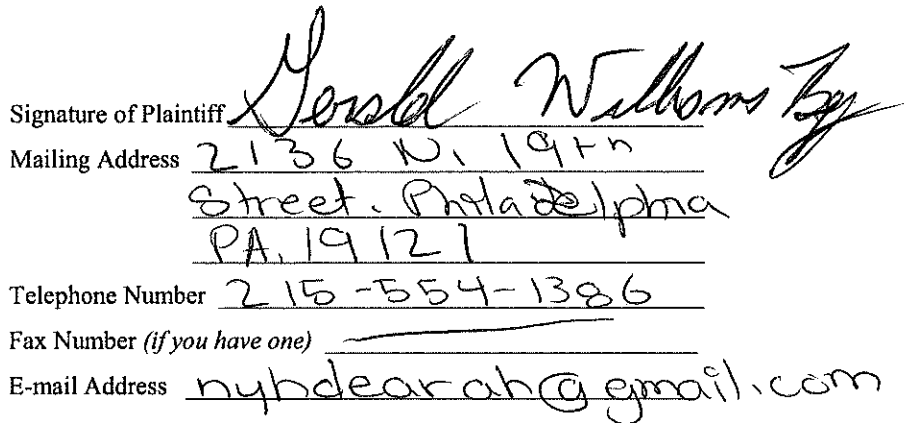 Signature of Plaintiff Gerald Williams Bey
Mailing Address 2136 N. 19th
Street. Philadelphia
PA. 19121
Telephone Number 215-554-1386
Fax Number (if you have one)
E-mail Address nyhdearah@gmail.com